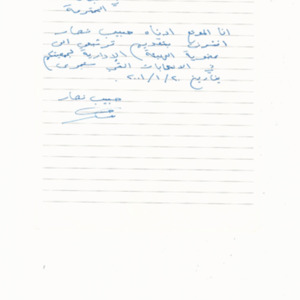 المحترمة
انا الموقع ادناه حبيب نصار
اتشرف بتقديم ترشيحي الى
عضوية الهيئة الادارية لجمعيتكم
في الانتخابات التي ستجري
بتاريخ ٢٠٠١/١/٢
حبيب نصار